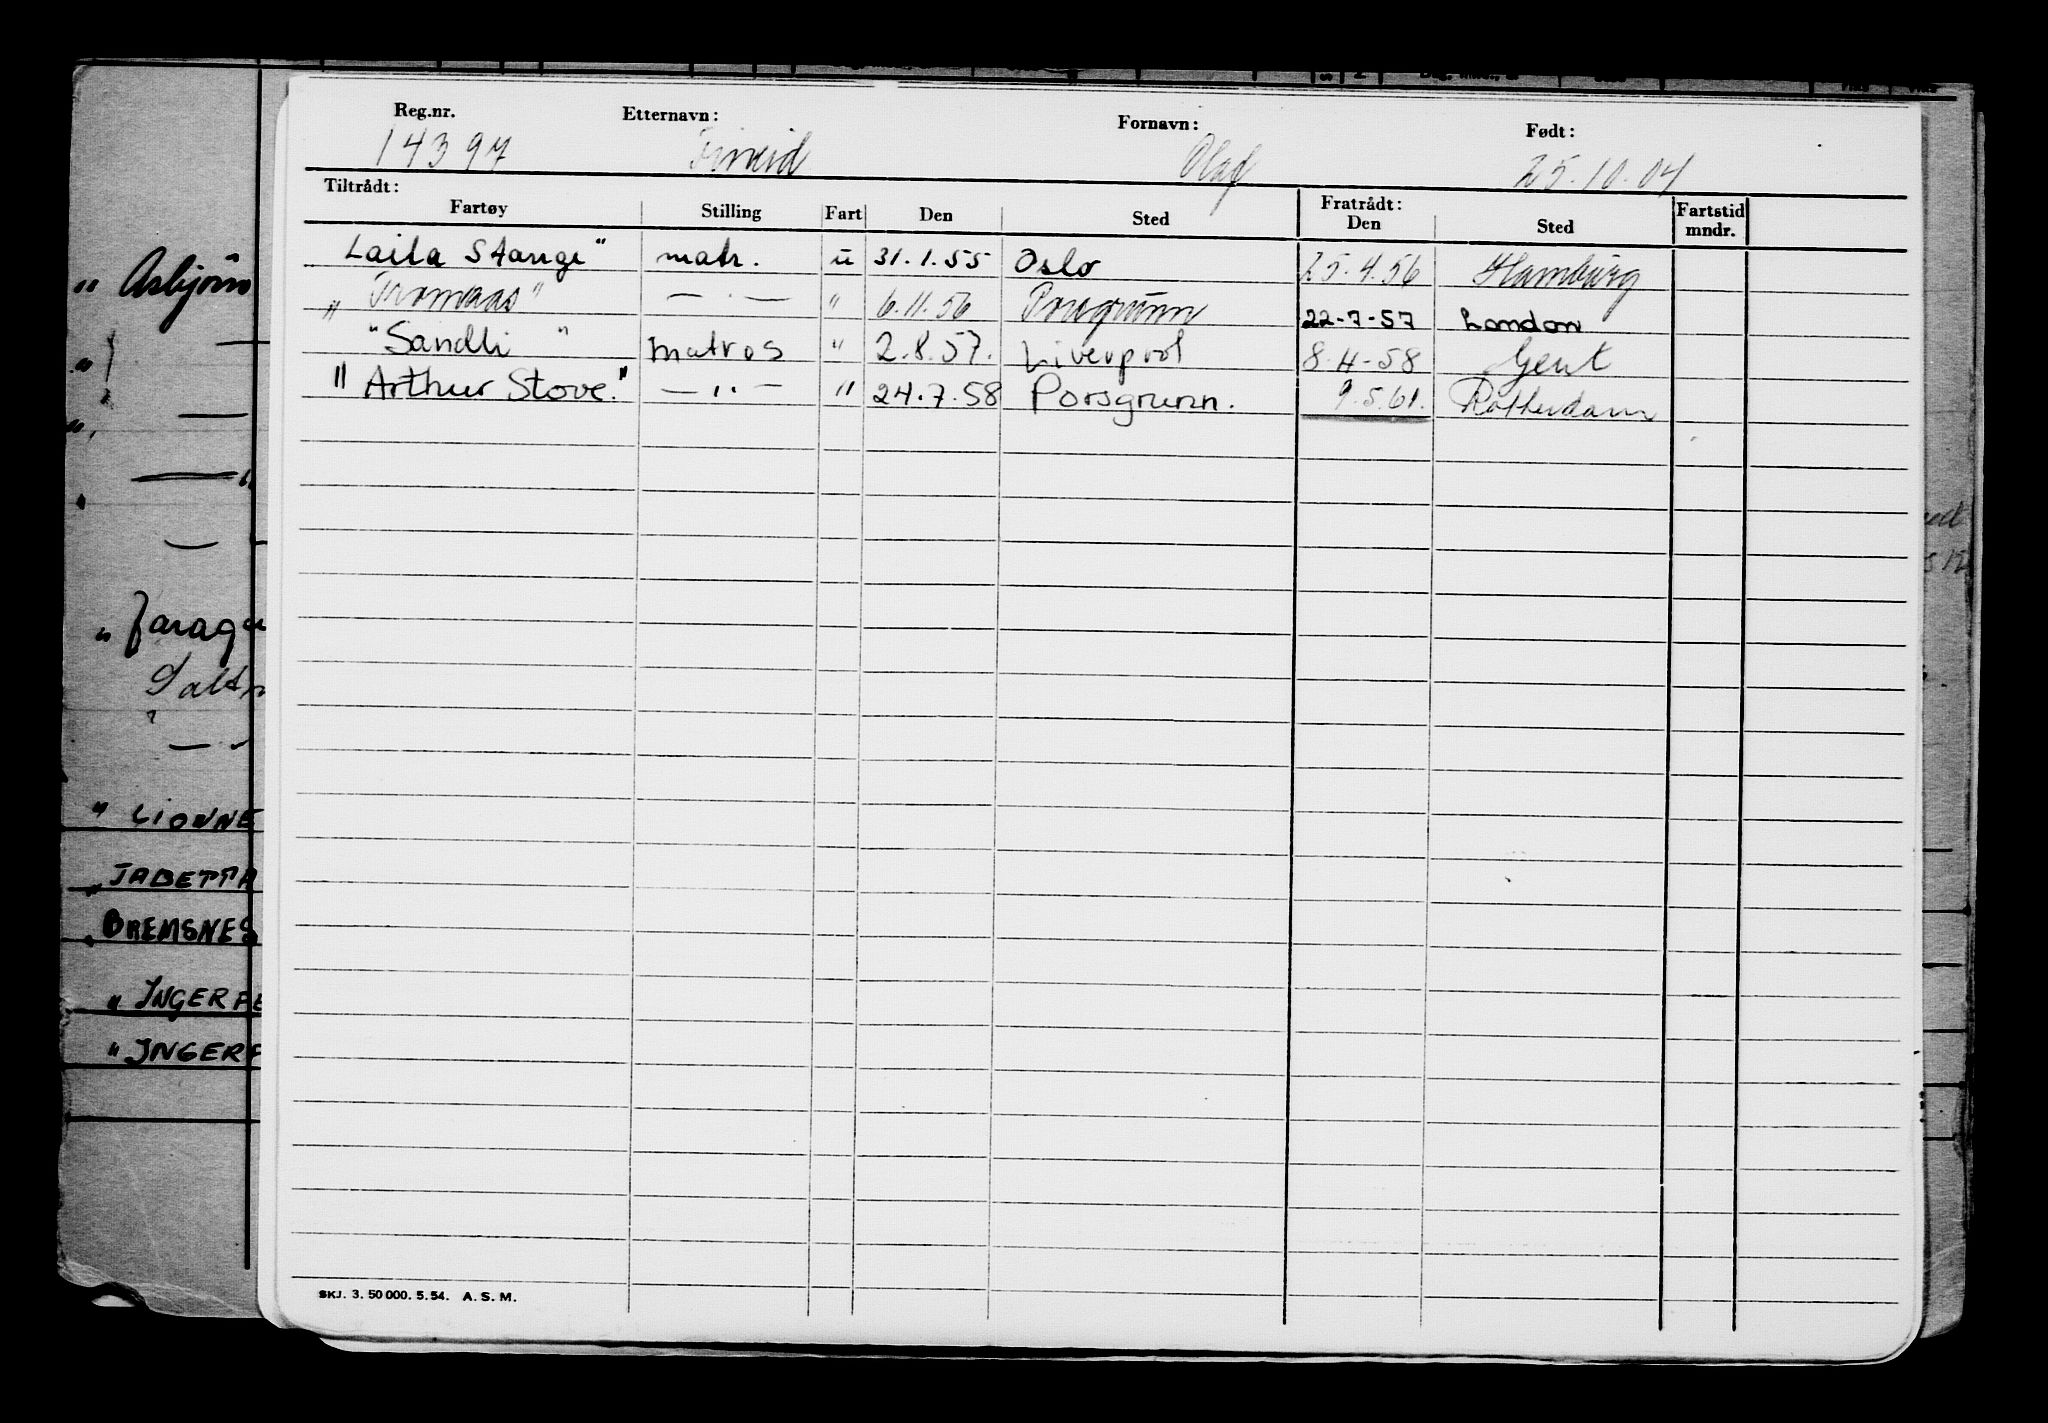 Reg.nr. Etternavn: Fornavn: Født:
14397 Fineid Olaf 25.10.04
Tiltrådt: Fratrådt:
Fartøy Stilling Fart Den Sted Den Sted Fartstid mndr.
Laila Stange" matr. u 31.1.55 Oslo 25.4.56 Hamburg
" Tromaas" — · — " 6.11.56 Porsgrunn 22-7-57 London
"Sandli " matros " 2.8.57. Liverpool 8-4-58 Gent
" Arthur Stove." — " — " 24.7.58 Porsgrunn. 9.5.61. Rotterdam
SKJ. 3. 50 000. 5. 54. A. S. M.
" Asbjørn
" LIONNE
" JADETTA
BREMSNES
" INGERFE
" INGERF